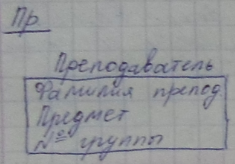 Пр.
Преподаватель
Фамилия препод
Предмет
№ группы